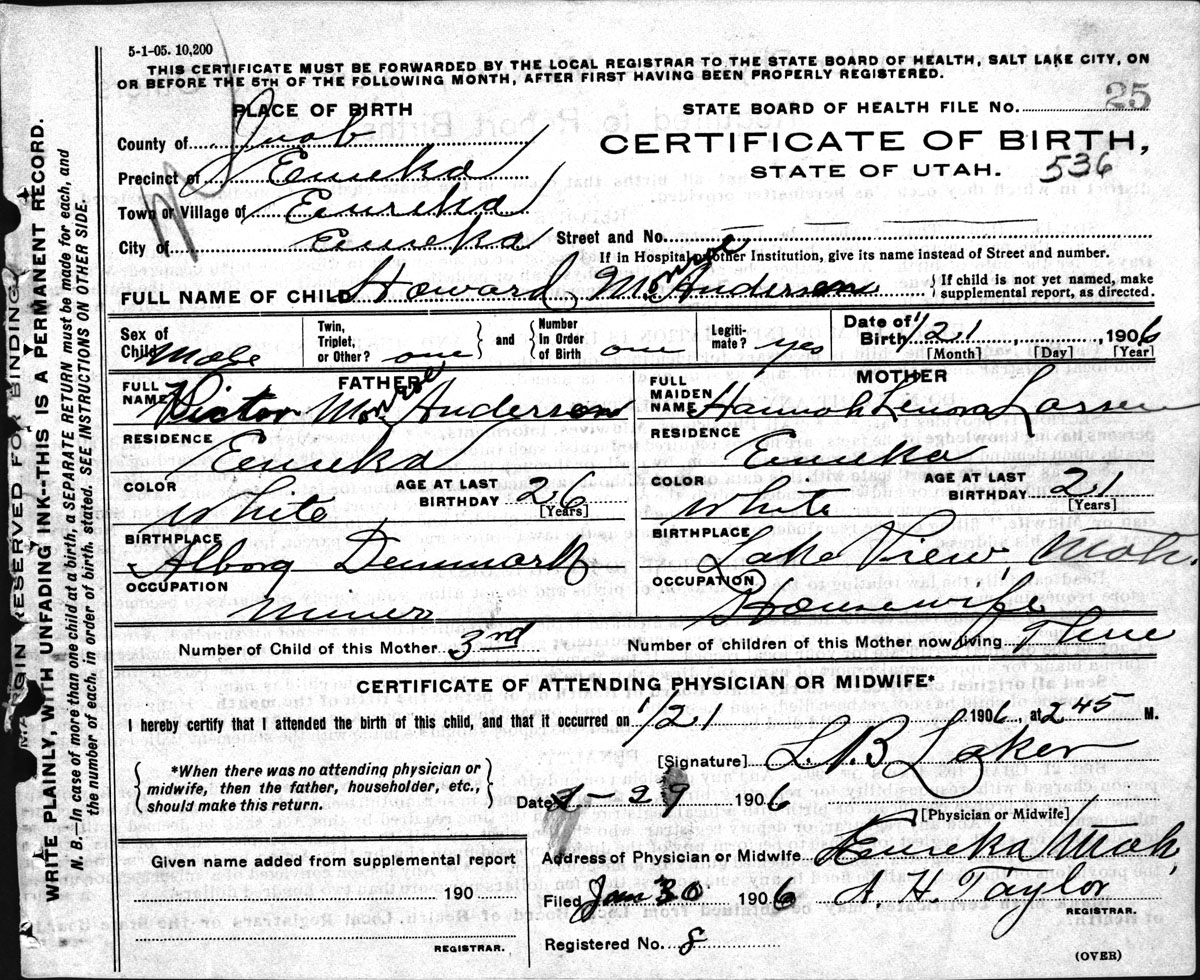 5-1-05. 10,200
THIS CERTIFICATE MUST BE FORWARDED BY THE LOCAL REGISTRAR TO THE STATE BOARD OF HEALTH, SALT LAKE CITY, ON
OR BEFORE THE 5TH OF THE FOLLOWING MONTH, AFTER FIRST HAVING BEEN PROPERLY REGISTERED.
PLACE OF BIRTH
STATE BOARD OF HEALTH FILE NO. 25
County of Juab
CERTIFICATE OF BIRTH,
Precinct of Eureka
STATE OF UTAH. 536
Town or Village of Eureka
City of Eureka Street and No.
If in Hospital or other Institution, give its name instead of Street and number.
FULL NAME OF CHILD Howard Monroe Anderson { If child is not yet named, make
supplemental report, as directed.
Sex of Child Male Twin, Triplet, or Other? one } and { Number In Order of Birth one Legitimate? yes Date of Birth 1/21, 1906
[Month] [Day] [Year]
FATHER MOTHER
FULL NAME Victor Monroe Anderson FULL MAIDEN NAME Hannah Lenora Larsen
RESIDENCE Eureka RESIDENCE Eureka
COLOR White AGE AT LAST BIRTHDAY 26 [Years] COLOR White AGE AT LAST BIRTHDAY 21 [Years]
BIRTHPLACE Alborg Denmark BIRTHPLACE Lake View, Utah.
OCCUPATION Miner OCCUPATION Housewife
Number of Child of this Mother 3rd Number of children of this Mother now living Three
CERTIFICATE OF ATTENDING PHYSICIAN OR MIDWIFE*
I hereby certify that I attended the birth of this child, and that it occurred on 1/21 1906, at 245 M.
{ *When there was no attending physician or
midwife, then the father, householder, etc.,
should make this return. }
[Signature] L.B. Laker
Date 1-29 1906
[Physician or Midwife]
Given name added from supplemental report
190
REGISTRAR.
Address of Physician or Midwife Eureka Utah,
Filed Jan 30 1906 A. H. Taylor
REGISTRAR.
Registered No. 8
(OVER)
MARGIN RESERVED FOR BINDING.
WRITE PLAINLY, WITH UNFADING INK--THIS IS A PERMANENT RECORD.
N. B.—In case of more than one child at a birth, a SEPARATE RETURN must be made for each, and
the number of each, in order of birth, stated. SEE INSTRUCTIONS ON OTHER SIDE.